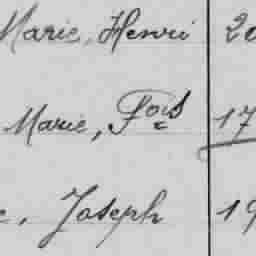 Marie, Henri 20
Marie, Fçois 17
e, Joseph 19